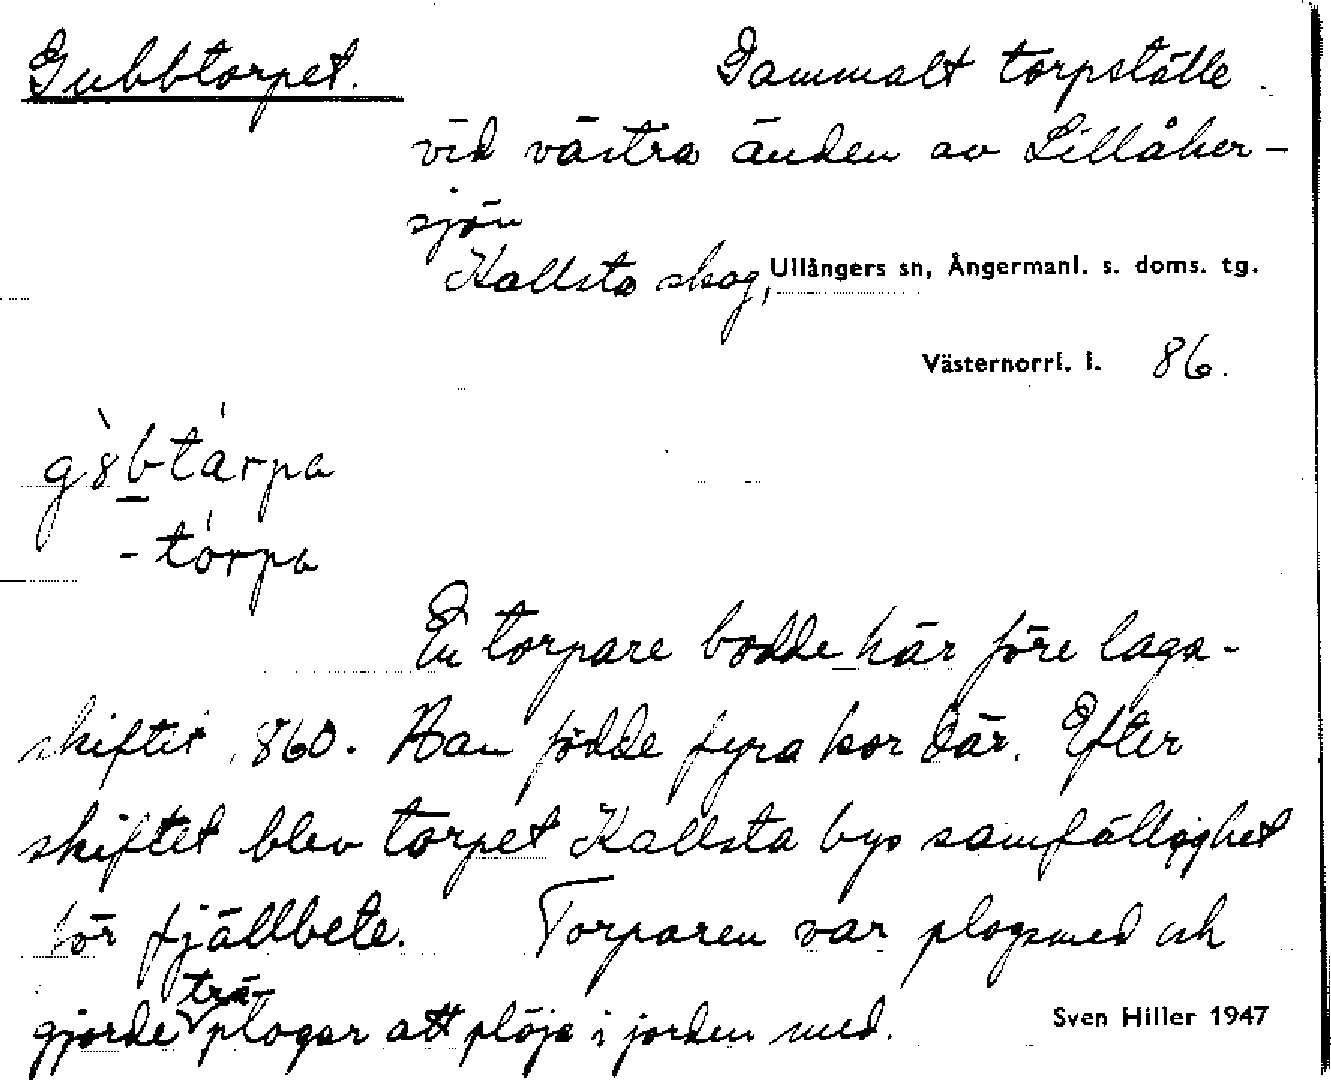 Gubbtorpet. Gammalt torpställe.
vid västra änden av Lillåker-
sjön
Kallsta skog, Ullångers sn, Ångermanl. s. doms. tg.
Västernorrl. l. 86.
-tórpa
En torpare bodde här före laga-
skiftet 1860. Han födde fyra kor där. Efter
skiftet blev torpet Kallsta bys samfällighet
för fjällbete. Torparen var plogsmed och
gjorde träplogar att plöja i jorden med.
Sven Hiller 1947